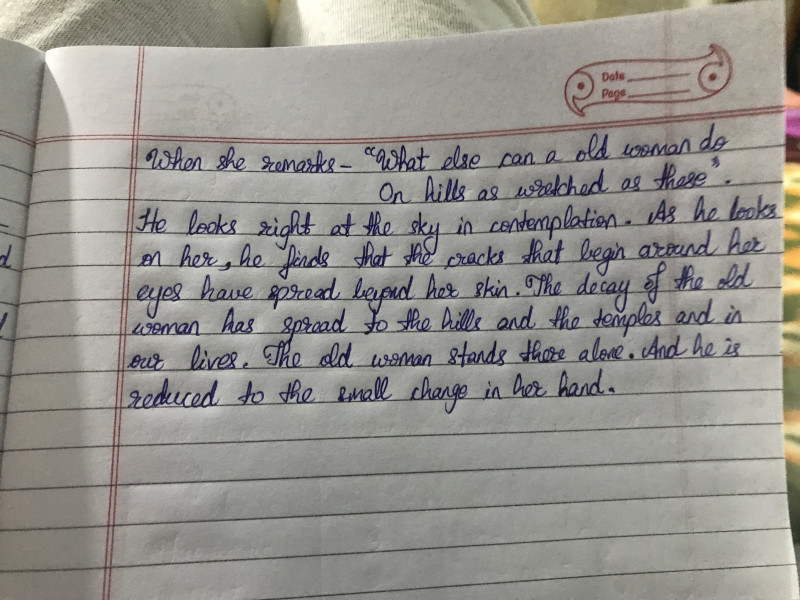 Date
Page
When she remarks - "What else can a old woman do
On hills as wretched as these".
He looks right at the sky in contemplation. As he looks
on her, he finds that the cracks that begin around her
eyes have spread beyond her skin. The decay of the old
woman has spread to the hills and the temples and in
our lives. The old woman stands there alone. And he is
reduced to the small change in her hand.
d